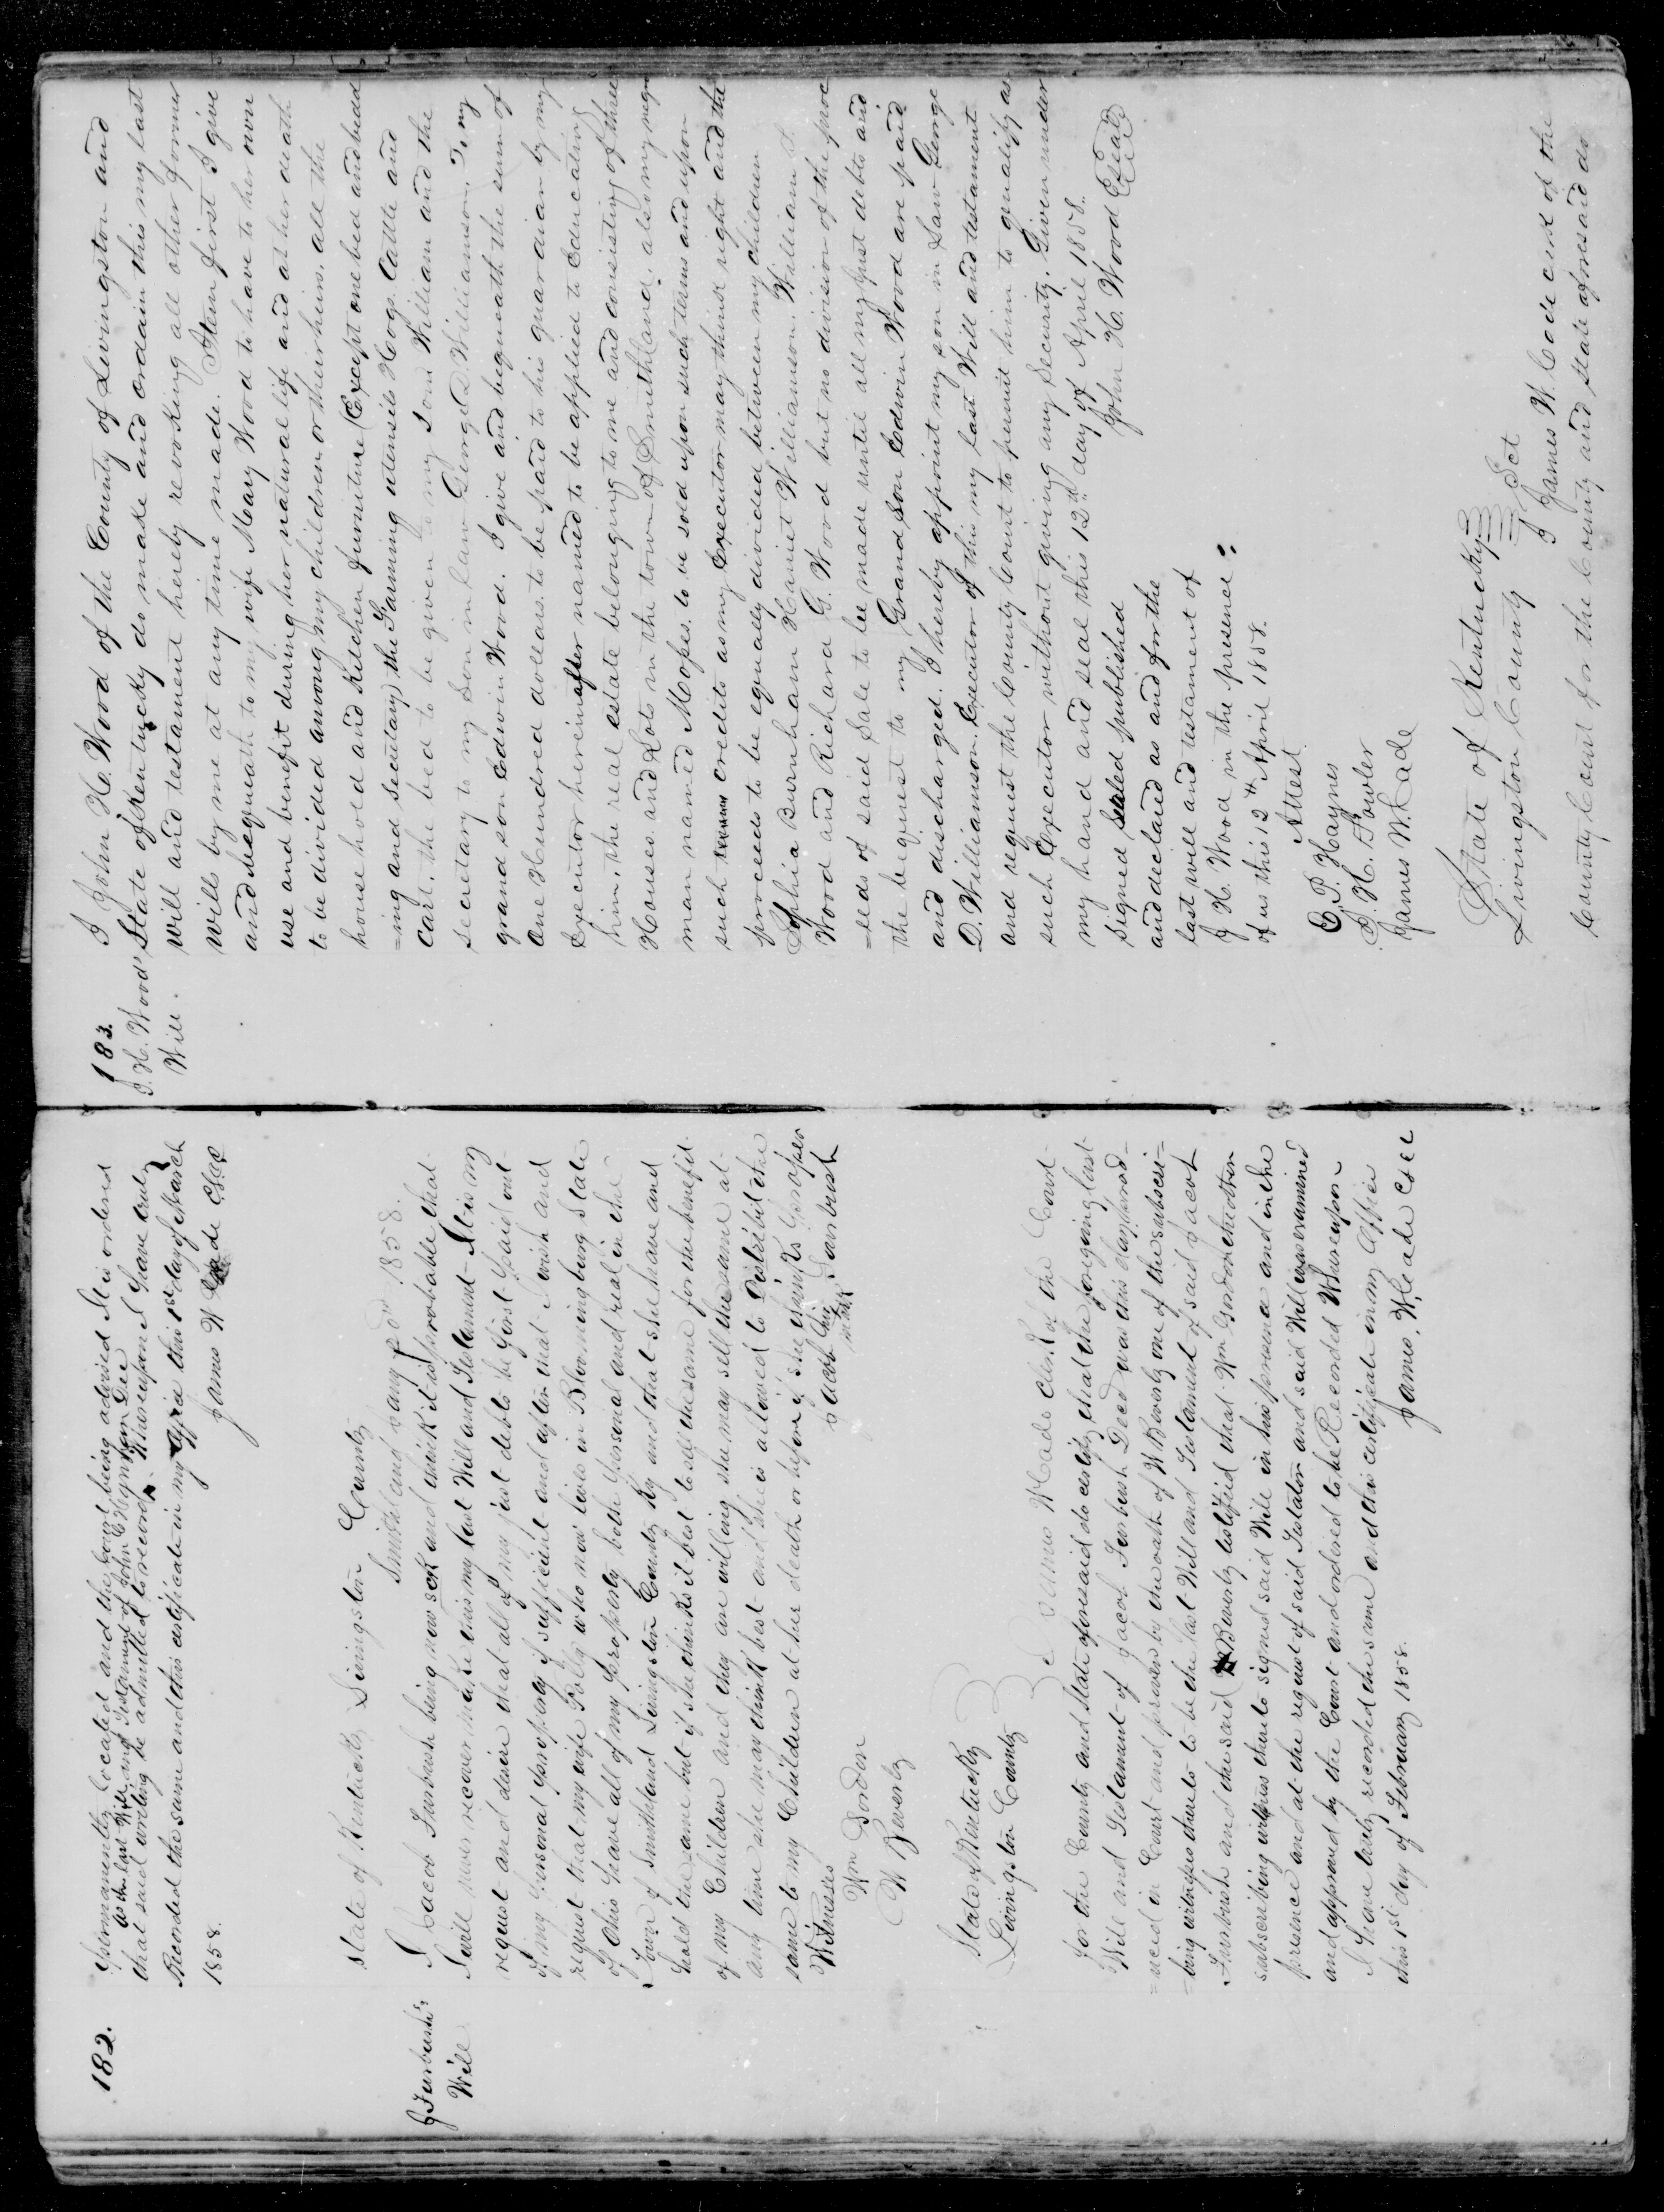 182.
Permanently located and the Court being advised It is ordered
as the last Will and Testament of John C Heynsfan Dec
that said writing be admitted to record. Whereupon I Have truly
Recorded the same and this certificate in my office this 1st day of March
1858. James W Cade Clk
State of Kentucky Livingston County
Smithland Jany 1858.
J Furbush's
Will
I Jacob Furbush being now sick and think it is probable that
I will never recover make this my last Will and Testament - It is my
request and desire that all of my just debts be first paid out
of my Personal property if sufficient and after that I wish and
request that my wife Polly who now lives in Bloomingburg State
of Ohio Have all of my property both Personal and real in the
Town of Smithland Livingston County Ky and that she have and
hold the same but if she thinks it best to sell the same for the benefit
of my Children and they are willing she may sell the same at
any time she may think best and she is allowed to Distribit the
same to my Children at her death or before if she thinks proper
Witnesses Jacob his mark Furbush
Wm Gordon
W Beverly
State of Kentucky
Livingston County Sc I James W Cade Clerk of the Court
for the County and State aforesaid do certify that the foregoing last
Will and Testament of Jacob Furbush Decd was this day prod-
=uced in Court and proven by the oath of W Beverly one of the subscri-
=bing witnesses thereto to be the last Will and Testament of said Jacob
Furbush and the said Beverly testified that Wm Gordon the other
subscribing witness thereto signed said Will in his presence and in the
presence and at the request of said Testator and said Will was examined
and approved by the Court and ordered to be Recorded Whereupon
I Have truly recorded the same and this certificate in my office
this 1st day of February 1858. James. W. Cade Clk
183.
J. H. Wood's
Will.
I John H. Wood of the County of Livingston and
State of Kentucky do make and ordain this my last
will and testament hereby revoking all other former
wills by me at any time made. Item first I give
and bequeath to my wife Mary Wood to have to her own
use and benefit during her natural life and at her death
to be divided among my children or their heirs, all the
house hold and Kitchen furniture (Except one bed and bead
=ing and secutary) the Farming utensils Hogs. Cattle and
Cart, the bed to be given to my son William and the
secretary to my Son in Law George D. Williamson. To my
grand son Edwin Wood. I give and bequeath the sum of
One Hundred dollars. to be paid to his guardian by my
Executor hereinafter named to be applied to Educating
him. the real estate belonging to me and consisting of three
Houses and Lots in the town of Smithland, also my negro
man named Mopes. to be sold upon such terms and upon
such credits as my Executor may think right and the
proceeds to be equally divided between my children
Sophia Burnham Hariet Williamson. William S.
Wood and Richard G. Wood but no division of the proc
=eeds of said Sale to be made until all my just debts and
the bequest to my Grand Son Edwin Wood are paid
and discharged. I hereby appoint my son in Law George
D. Williamson. Executor of this my last Will and testament
and request the County Court to permit him to qualify as
such Executor without giving any Security. Given under
my hand and seal this 12th day of April 1858.
Signed Sealed published John H. Wood (Seal)
and declared as and for the
last will and testament of
J H. Wood in the presence
of us this 12th April 1858.
Attest
E. P. Haynes
D. H. Fowler
James W. Cade
State of Kentucky
Livingston County Sct
I James W. Cade clerk of the
County Court for the County and State aforesaid do